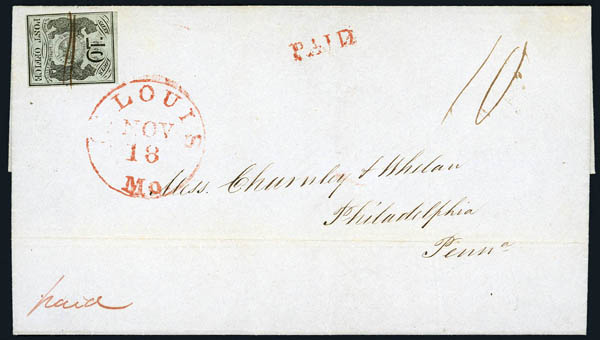 10
POST OFFICE
PAID
10
LOUIS
NOV
18
Mo.
Mess. Chumley & Whelan
Philadelphia
Penna
paid